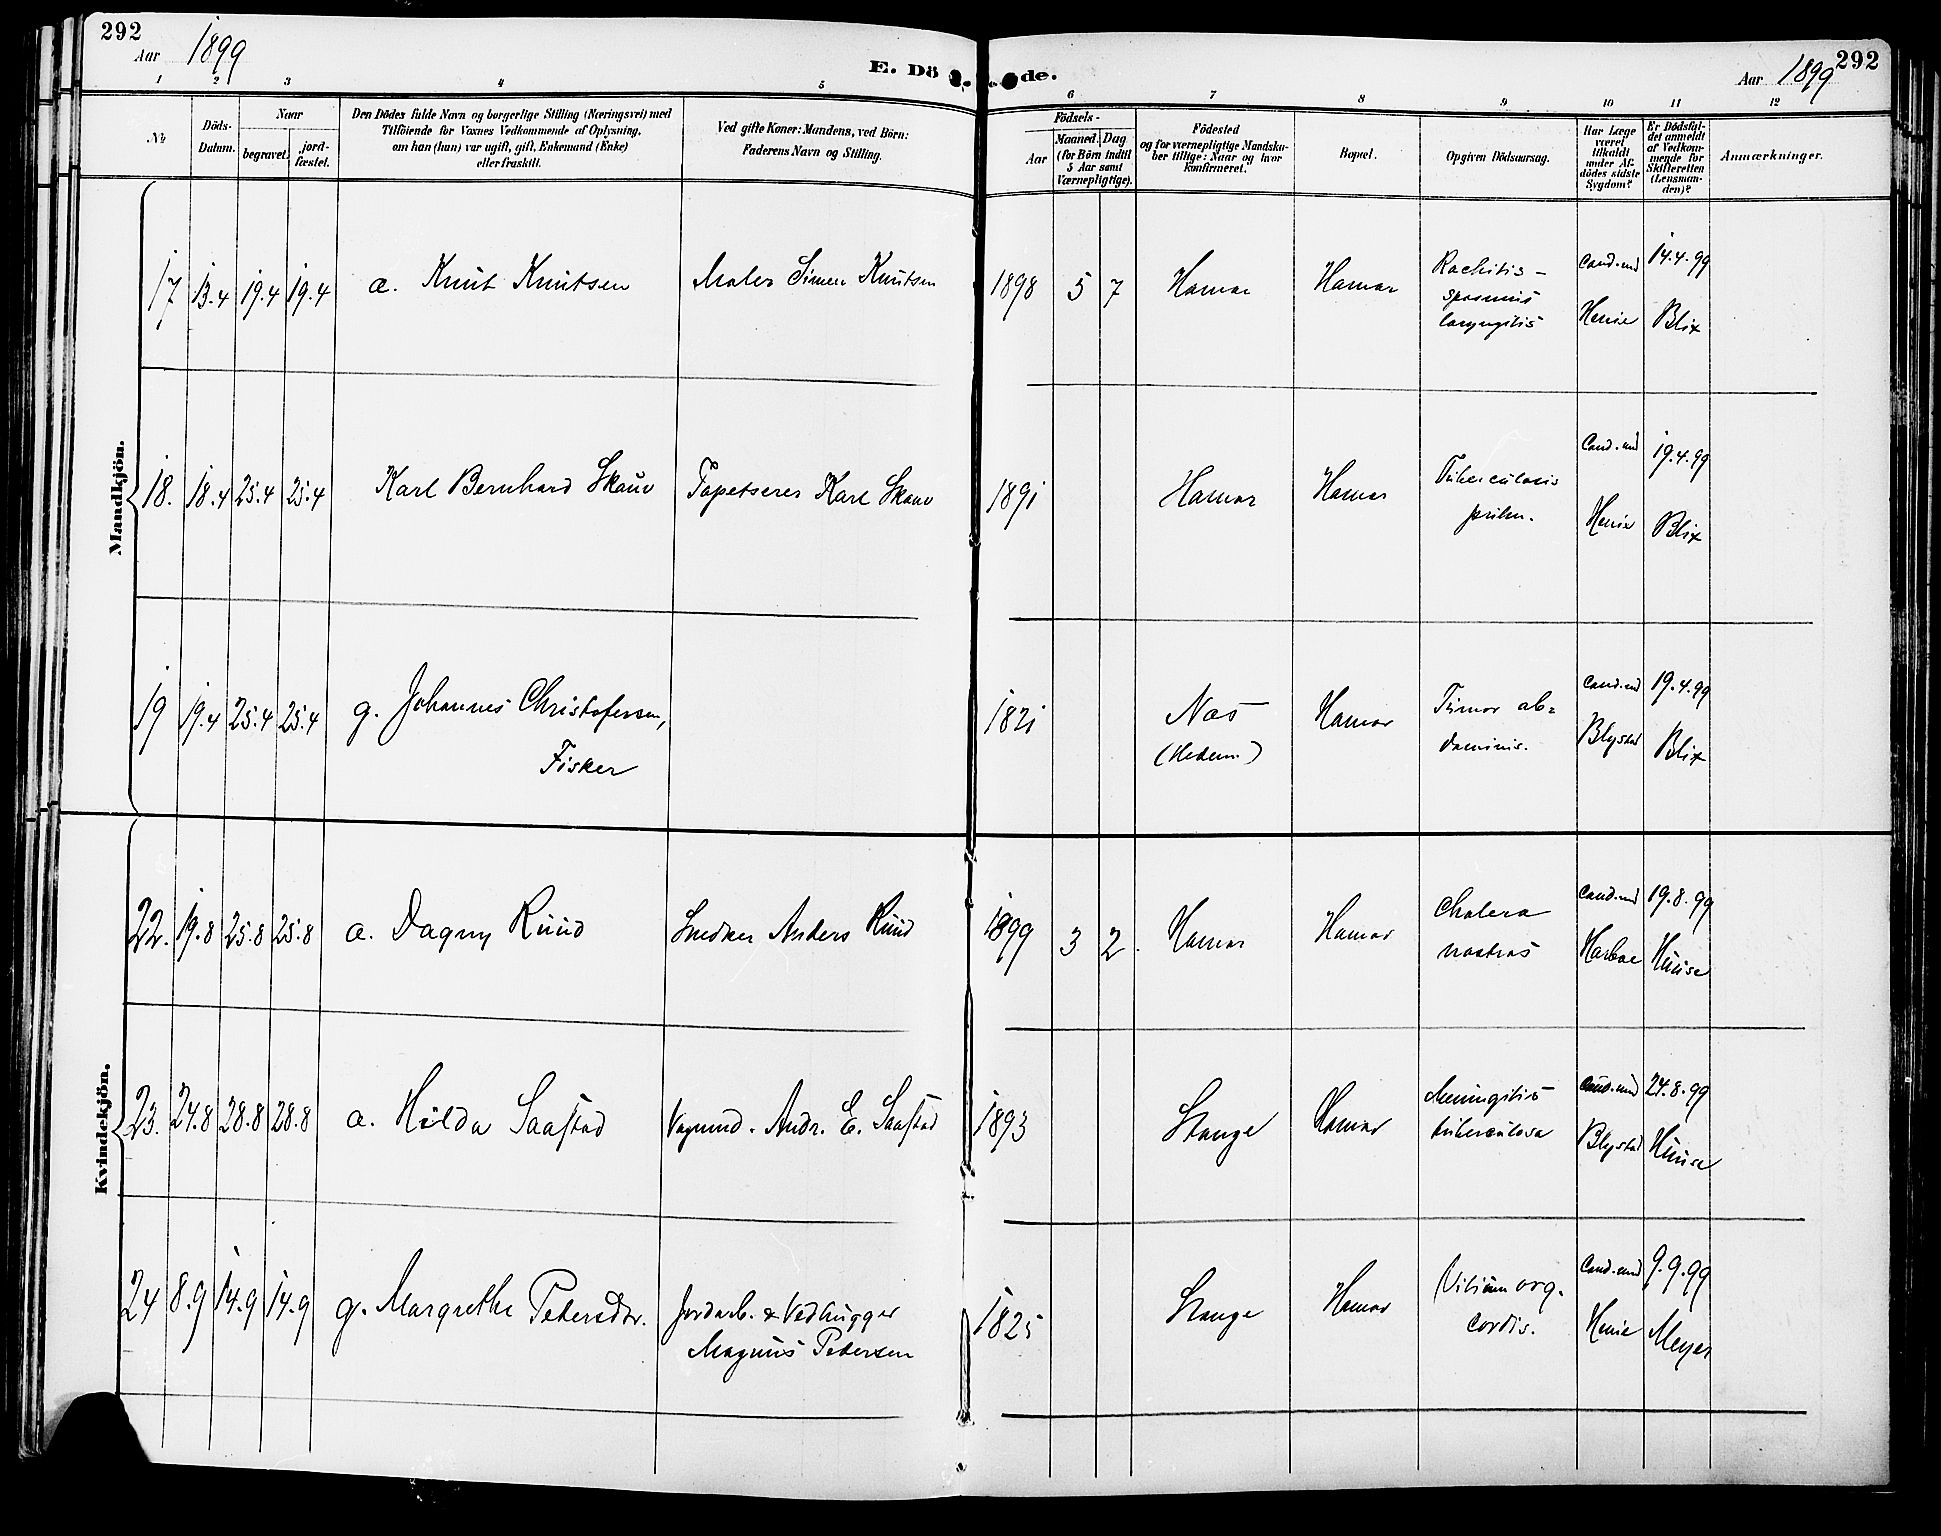 292
Aar 1899
E. Dö de.
Aar 1899
292
1 2 3 4 5 6 7 8 9 10 11 12
№
Döds-
Datum.
Naar
begravet.
jord-
fæstet.
Den Dödes fulde Navn og borgerlige Stilling (Næringsvei) med
Tilföiende for Voxnes Vedkommende af Oplysning,
om han (hun) var ugift, gift, Enkemand (Enke)
eller fraskilt.
Ved gifte Koner: Mandens, ved Börn:
Faderens Navn og Stilling.
Födsels-
Aar
Maaned. Dag
(for Börn indtil
5 Aar samt
Værnepligtige).
Födested
og for værnepligtige Mandska-
ber tillige: Naar og hvor
konfirmeret.
Bopæl.
Opgiven Dödsaarsag.
Har Læge
været
tilkaldt
under Af-
dödes sidste
Sygdom?
Er Dödsfal-
det anmeldt
af Vedkom-
mende for
Skifteretten
(Lensman-
den)?
Anmærkninger.
Mandkjön.
17 13.4 19.4 19.4 a. Knut Knutsen Maler Simen Knutsen 1898 5 7 Hamar Hamar Rachitis - Cand.med 14.4.99
spasmus
laryngitis Henie Blix
18. 18.4 25.4 25.4 Karl Bernhard Skauv Tapetserer Karl Skauv 1891 Hamar Hamar Tuberculosis Cand.med 19.4.99
pulm. Henie Blix
19 19.4 25.4 25.4 g. Johannes Christofersen, 1821 Næs Hamar Tumor ab= Cand.md 19.4.99
Fisker (Hedem.) dominis. Blystad Blix
Kvindekjön.
22. 19.8 25.8 25.8 a. Dagny Ruud Snedker Anders Ruud 1899 3 2 Hamar Hamar Cholera Cand.med 19.8.99
nostras Harboe Huuse
23. 24.8 28.8 28.8 a. Hilda Saastad Vognmd. Andr. E. Saastad 1893 Stange Hamar Meningitis Cand.med 24.8.99
tuberculosa Blystad Huuse
24 8.9 14.9 14.9 g. Margrethe Petersdtr. Jordarb. & Vedhugger 1825 Stange Hamar Vitium org. Cand.med 9.9.99
Magnus Petersen cordis. Henie Meyer